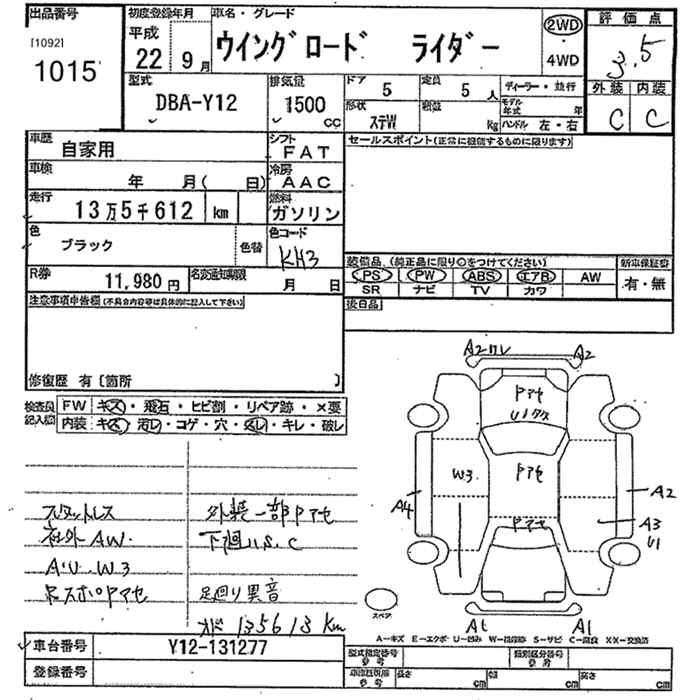 出品番号 初度登録年月 車名・グレード 評価点
[1092] 1015 平成 22年 9月 ウイングロード ライダー 2WD・4WD 3.5
型式 排気量 ドア 5 定員 5人 ディーラー・並行 外装 内装
DBA-Y12 1500cc 形状 ステW 積載 kg モデル年式 年 ハンドル 左・右 C C
車歴 自家用 シフト FAT セールスポイント(正常に機能するものに限ります)
車検 年 月( 日) 冷房 AAC
走行 13万5千612 km 燃料 ガソリン
色 ブラック 色替 色コード KH3
装備品 (純正品に限り○をつけてください) 新車保証書
PS PW ABS エアB AW 有・無
R券 11,980円 名変通知期限 月 日 SR ナビ TV カワ
注意事項申告欄(不具合内容等は具体的に記入して下さい) 後日品
修復歴 有 [箇所 ]
検査員記入欄 FW キズ・飛石・ヒビ割・リペア跡・×要
内装 キズ・汚レ・コゲ・穴・スレ・キレ・破レ
A2 ワレ A2
Pアセ
U1 タス
W3 Pアセ
A4 A2
Pアセ A3
U1
スタットレス 外装一部Pアセ
社外AW. 下廻U.S.C
A'U W3
Rスポイラアセ 足廻り異音
オド 135613Km
スペア A1 A1
A-キズ E-エクボ U-凹み W-補修跡 S-サビ C-腐食 XX-交換済
車台番号 Y12-131277 型式指定番号 参考 類別区分番号 参考
登録番号 車検証積載 参考 長さ cm 幅 cm 高さ cm